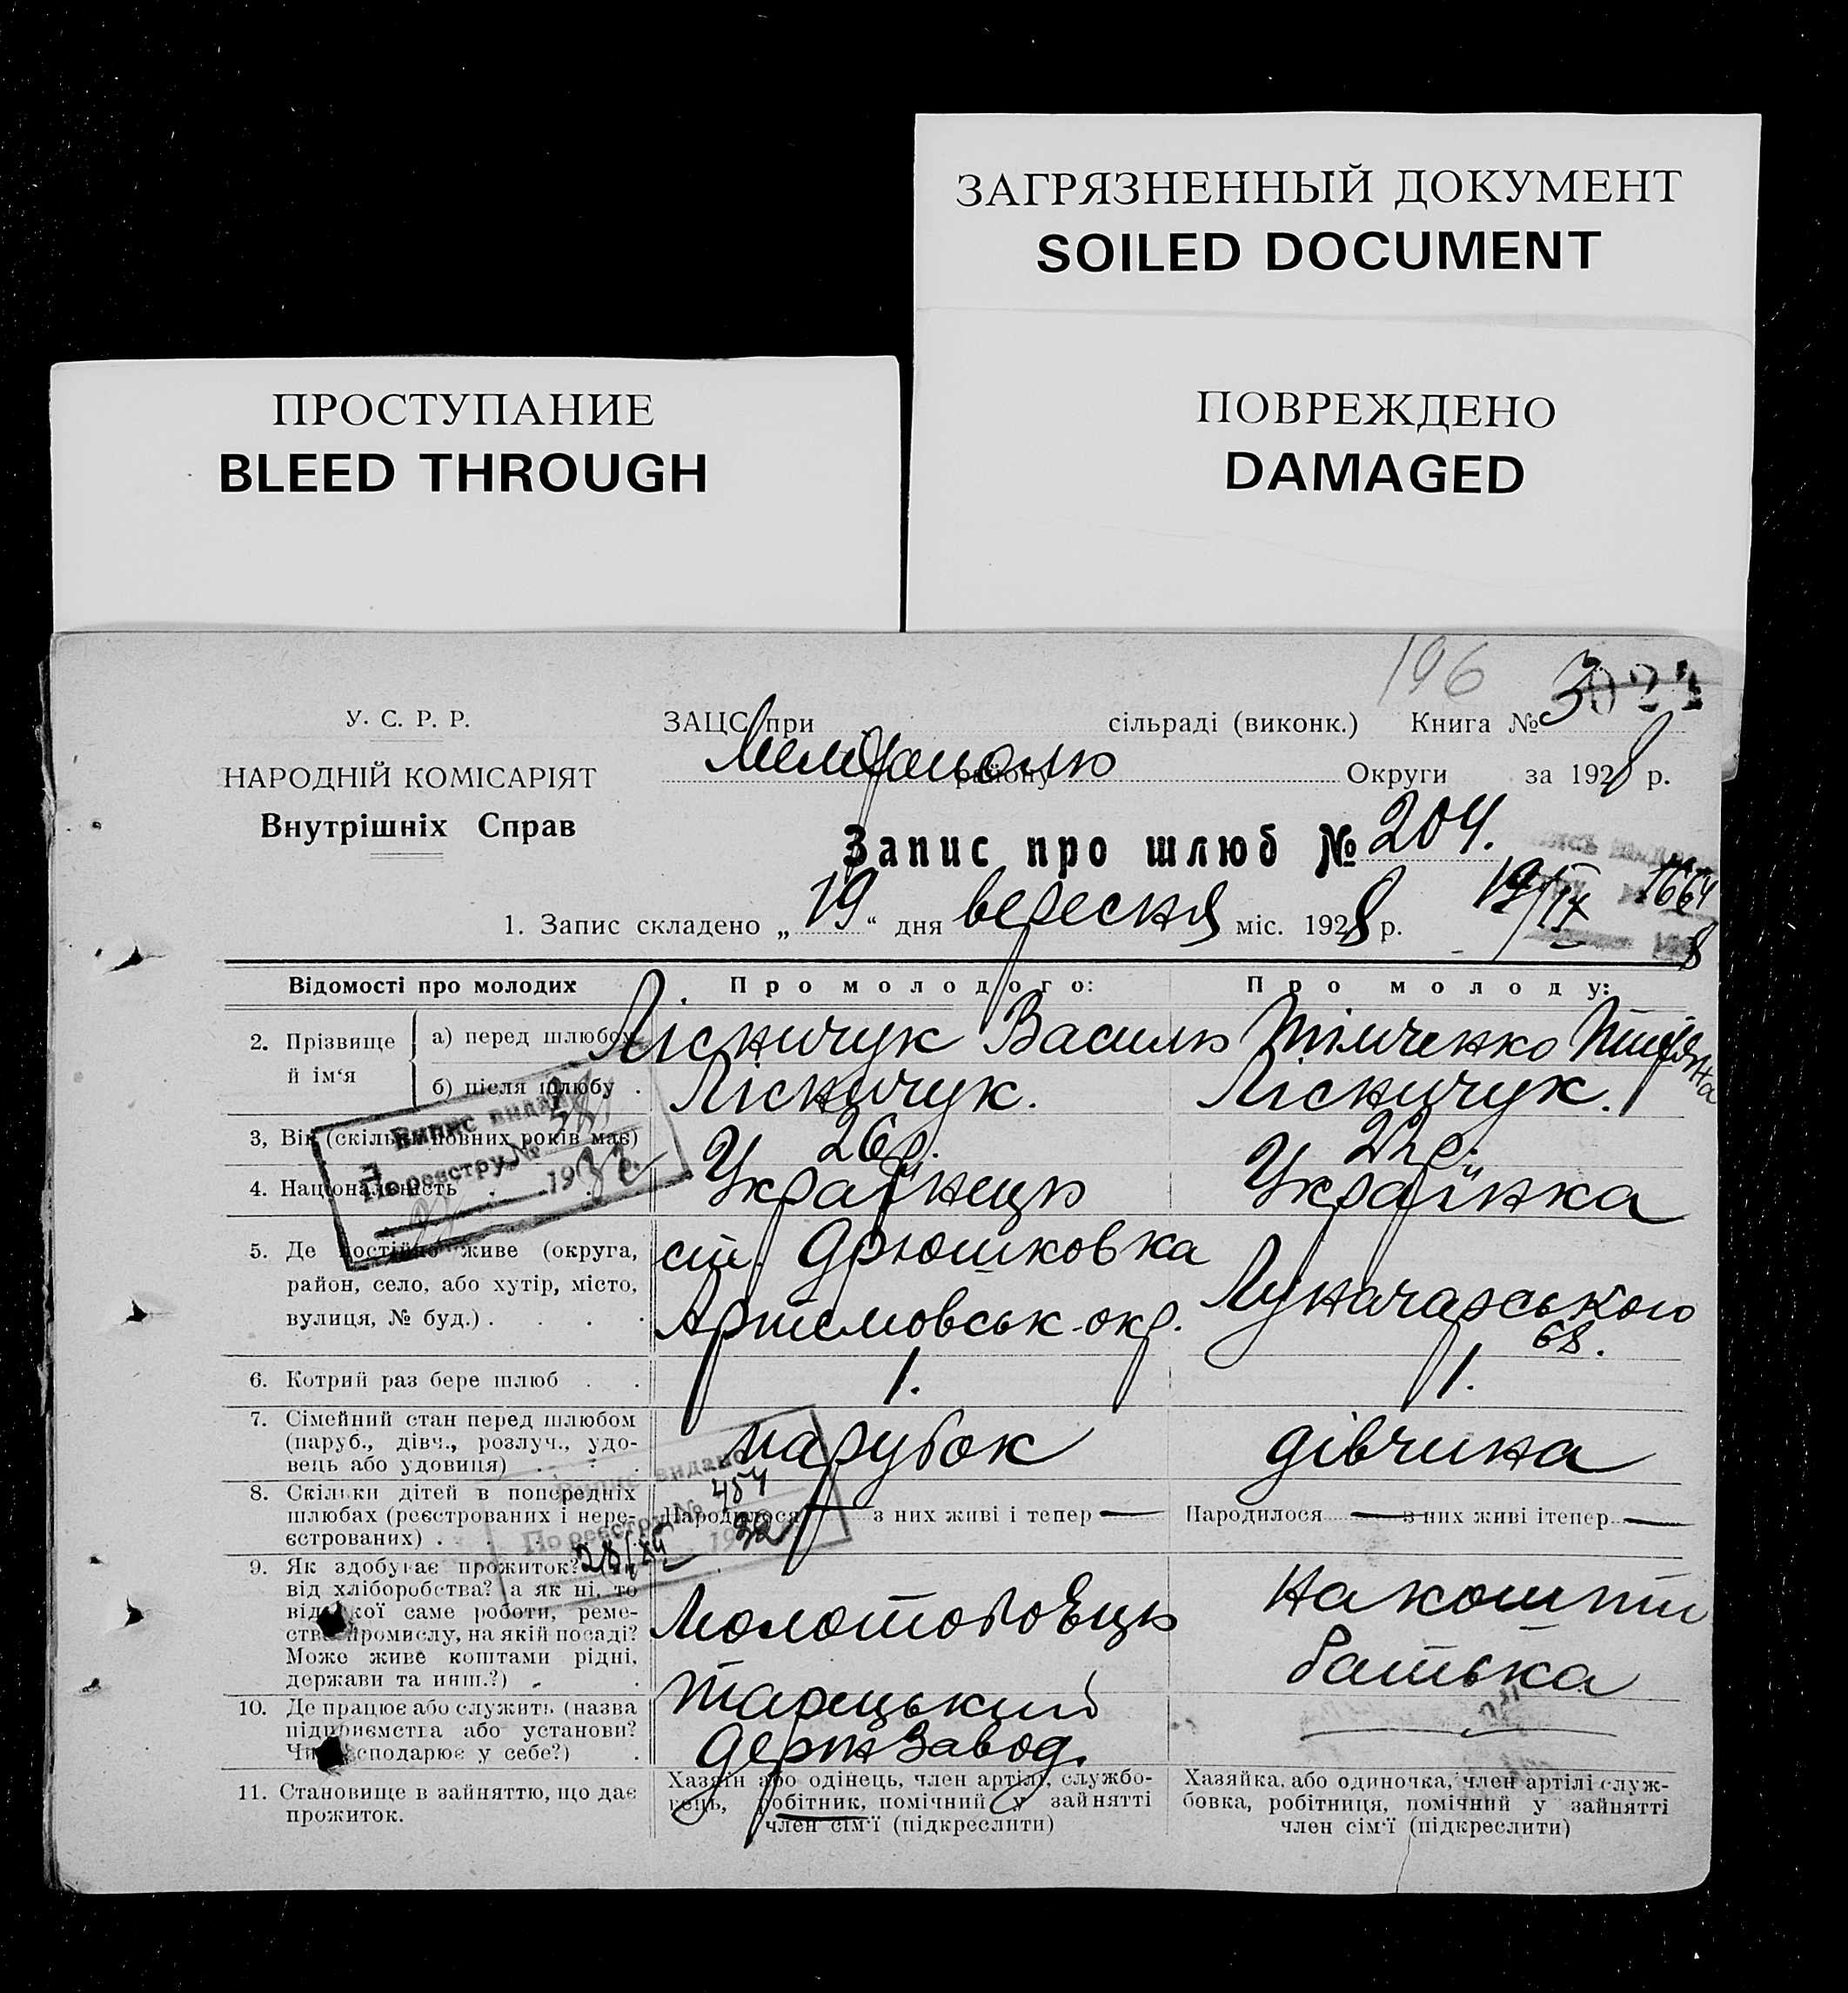 ЗАГРЯЗНЕННЫЙ ДОКУМЕНТ
SOILED DOCUMENT
ПРОСТУПАНИЕ
BLEED THROUGH
ПОВРЕЖДЕНО
DAMAGED
196
У. С. Р. Р.
НАРОДНІЙ КОМІСАРІЯТ
Внутрішніх Справ
ЗАЦС при сільраді (виконк.) Книга №
району Округи за 1928 р.
Запис про шлюб № 204.
1. Запис складено „ 19 “ дня вересня міс. 1928 р.
19/IX 1664
8
Відомості про молодих
Про молодого:
Про молоду:
2. Прізвище й ім‘я
а) перед шлюбом
Лісничук Василь
Тімченко
б) після шлюбу .
Лісничук.
Лісничук.
3, Вік (скільки повних років має)
26 р.
22 р.
4. Національність
Українець
Українка
Випис видано
По реєстру №
193
5. Де постійно живе (округа,
район, село, або хутір, місто,
вулиця, № буд.) . . . .
ст. Дрюшковка
Артемовськ. окр.
Луначарського
68.
6. Котрий раз бере шлюб . .
1.
1.
7. Сімейний стан перед шлюбом
(паруб., дівч., розлуч., удо-
вець або удовиця) . . .
парубок
дівчина
Випис видано
По реєстру № 454
8. Скільки дітей в попередніх
шлюбах (реєстрованих і нере-
єстрованих) .
Народилося — з них живі і тепер —
Народилося — з них живі і тепер —
9. Як здобуває прожиток?
від хліборобства? а як ні, то
від якої саме роботи, реме-
ства, промислу, на якій посаді?
Може живе коштами рідні,
держави та инш.?) .
Молотобоєць
На кошти
батька
10. Де працює або служить (назва
підприємства або установи?
Чи господарює у себе?) .
Торецький
Держзавод.
11. Становище в зайняттю, що дає
прожиток.
Хазяїн або одінець, член артілі, службо-
вець, робітник, помічний у зайнятті
член сім‘ї (підкреслити)
Хазяйка, або одиночка, член артілі служ-
бовка, робітниця, помічний у зайнятті
член сім‘ї (підкреслити)